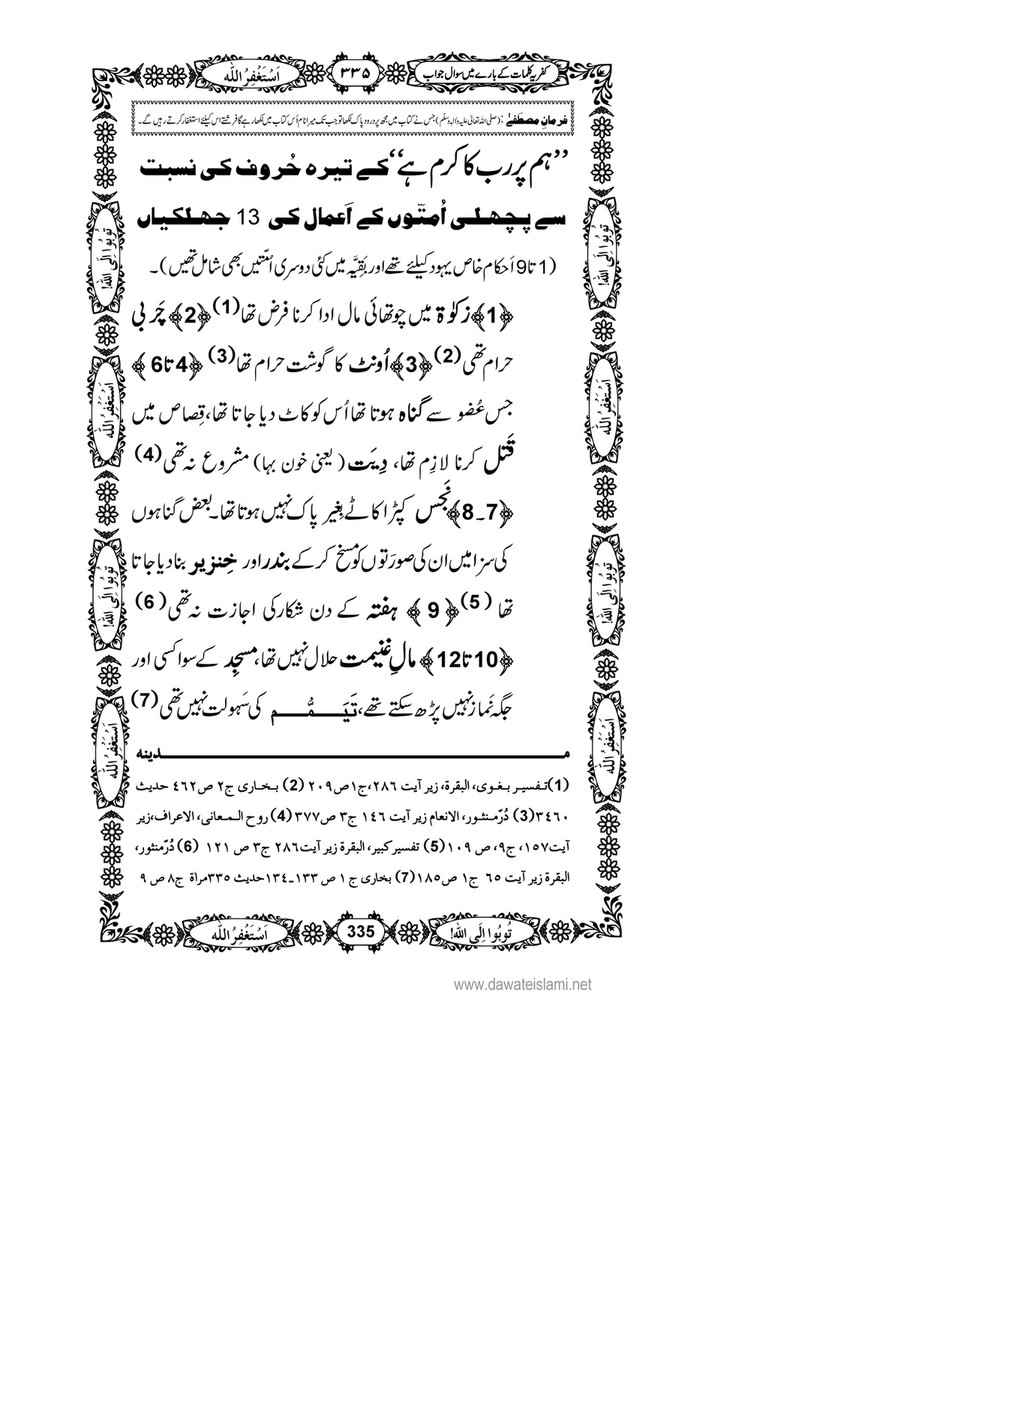 کفریہ کلمات کے بارے میں سوال جواب ۳۳۵ اَسْتَغْفِرُ اللّٰہ
فرمانِ مصطفےٰ: (صلی اللہ تعالیٰ علیہ والہٖ وسلّم) جس نے کتاب میں مجھ پر درود پاک لکھا تو جب تک میرا نام اُس کتاب میں لکھا رہے گا فرشتے اس کیلئے استغفار کرتے رہیں گے۔
’’ہم پر رب کا کرم ہے‘‘ کے تیرہ حُروف کی نسبت
سے پچھلی اُمتّوں کے اَعمال کی 13 جھلکیاں
(1 تا 9 اَحکام خاص یہود کیلئے تھے اور بَقِیَّہ میں کئی دوسری اُمّتیں بھی شامل تھیں)۔
﴿1﴾ زکٰوۃ میں چوتھائی مال ادا کرنا فرض تھا(1) ﴿2﴾ چَربی
حرام تھی(2) ﴿3﴾ اُونٹ کا گوشت حرام تھا(3) ﴿4 تا 6﴾
جس عُضو سے گناہ ہوتا تھا اُس کو کاٹ دیا جاتا تھا، قِصاص میں
قَتل کرنا لازِم تھا، دِیَت (یعنی خون بہا) مشروع نہ تھی(4)
﴿7۔8﴾ نَجِس کپڑا کاٹے بِغیر پاک نہیں ہوتا تھا۔ بعض گناہوں
کی سزا میں ان کی صورَتوں کو مَسخ کر کے بندر اور خِنزیر بنا دیا جاتا
تھا (5) ﴿9﴾ ہفتہ کے دن شکار کی اجازت نہ تھی(6)
﴿10 تا 12﴾ مالِ غنیمت حلال نہیں تھا، مسجِد کے سوا کسی اور
جگہ نَماز نہیں پڑھ سکتے تھے، تَیَمُّم کی سَہولت نہیں تھی(7)
مدینہ
(1) تفسیر بغوی، البقرة، زیر آیت ۲۸۶، ج۱ ص۲۰۹ (2) بخاری ج۲ ص۴۶۲ حدیث
۳۴۶۰ (3) دُرّمنثور، الانعام زیر آیت ۱۴۶ ج۳ ص۳۷۷ (4) روح المعانی، الاعراف، زیر
آیت۱۵۷، ج۹، ص ۱۰۹ (5) تفسیر کبیر، البقرة زیر آیت۲۸۶ ج۳ ص ۱۲۱ (6) دُرّمنثور،
البقرة زیر آیت ۶۵ ج۱ ص۱۸۵ (7) بخاری ج ۱ ص ۱۳۳۔۱۳۴ حدیث ۳۳۵ مراة ج۸ ص ۹
تُوبُوا اِلَی اللہ!
اَسْتَغْفِرُ اللّٰہ
تُوبُوا اِلَی اللہ!
اَسْتَغْفِرُ اللّٰہ
تُوبُوا اِلَی اللہ!
اَسْتَغْفِرُ اللّٰہ
تُوبُوا اِلَی اللہ!
اَسْتَغْفِرُ اللّٰہ
تُوبُوا اِلَی اللہ! 335 اَسْتَغْفِرُ اللّٰہ
www.dawateislami.net